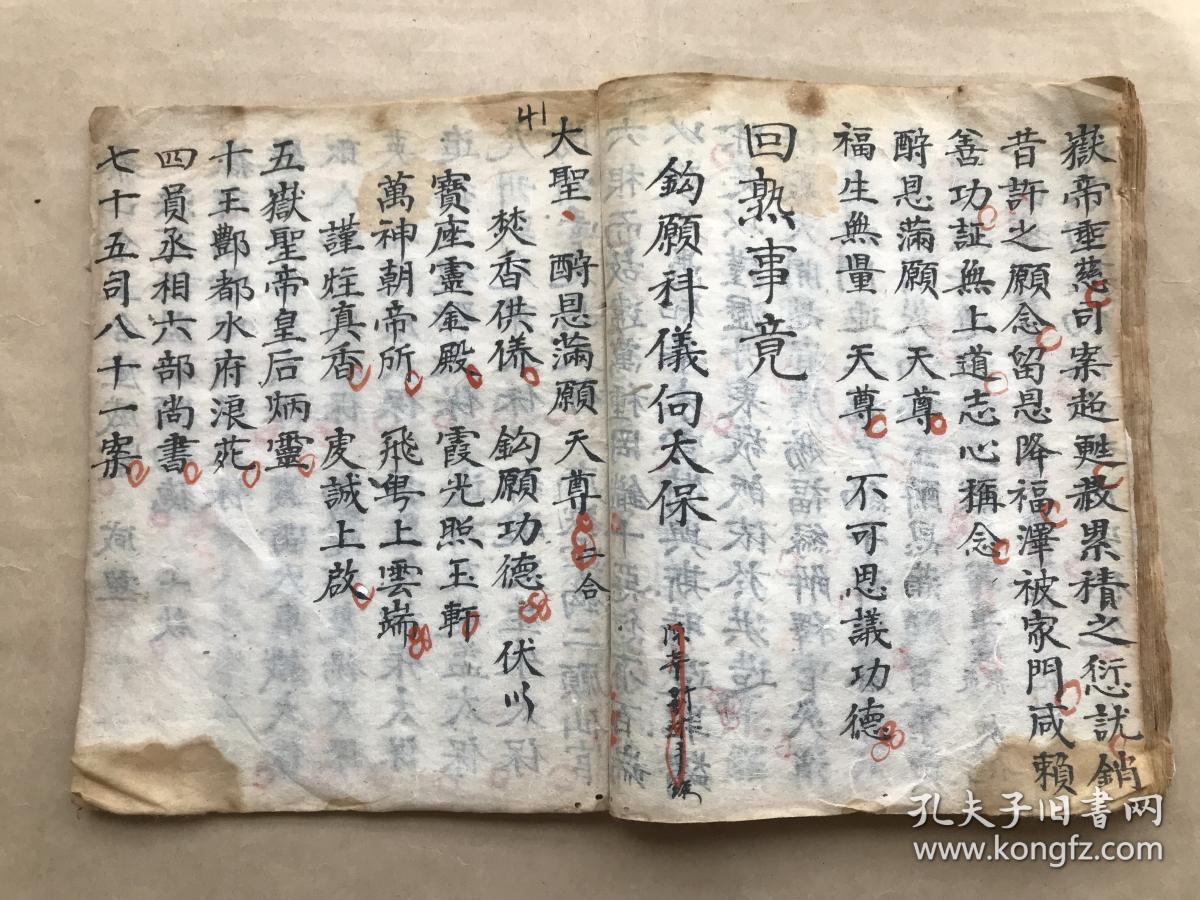 嶽帝垂慈司案超甦赦累積之愆訧銷
昔許之願念留恩降福澤被家門咸賴
善功証無上道志心稱念
酧恩滿願 天尊
福生無量 天尊 不可思議功德
回熟事竟
鈎願科儀伺太保
41
大聖、酧恩滿願 天尊 二合
焚香供俻 鈎願功德 伏以
寶座靈金殿 霞光照玉軒
萬神朝帝所 飛舄上雲端
謹炷真香 虔誠上啟
五嶽聖帝皇后炳靈
十王酆都水府浪苑
四員丞相六部尚書
七十五司八十一案
孔夫子旧书网
www.kongfz.com